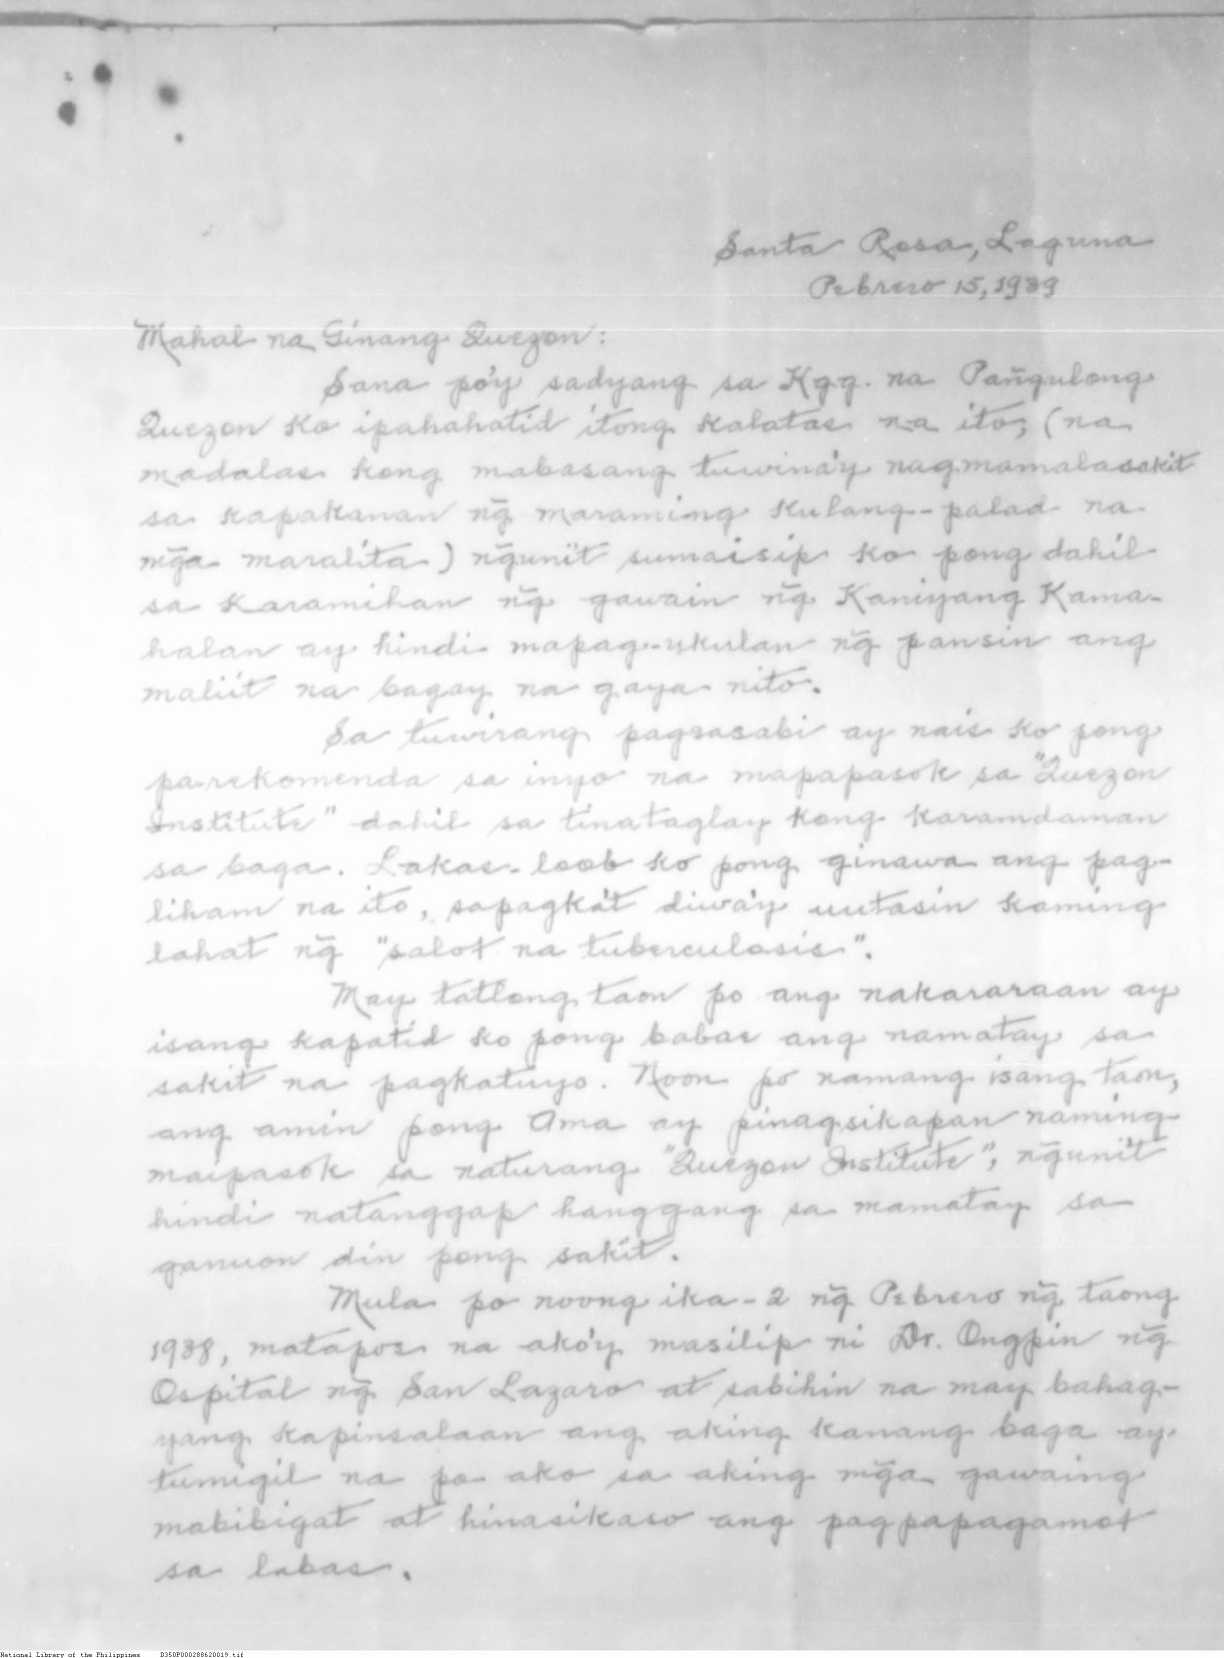 Santa Rosa, Laguna
Pebrero 15, 1939
Mahal na Ginang Quezon:
Sana po'y sadyang sa Kgg. na Pañgulong
Quezon ko ipahahatid itong kalatas na ito, (na
madalas kong mabasang tuwina'y nagmamalasakit
sa kapakanan ng̃ maraming kulang-palad na
mg̃a maralita.) ng̃uni't sumaisip ko pong dahil
sa karamihan ng̃ gawain ng̃ Kaniyang Kama-
halan ay hindi mapag-ukulan ng̃ pansin ang
maliit na bagay na gaya nito.
Sa tuwirang pagsasabi ay nais ko pong
parekomenda sa inyo na mapapasok sa "Quezon
Institute" dahil sa tinataglay kong karamdaman
sa baga. Lakas-loob ko pong ginawa ang pag-
liham na ito, sapagka't diwa'y uutasin kaming
lahat ng̃ "salot na tuberculosis".
May tatlong taon po ang nakararaan ay
isang kapatid ko pong babae ang namatay sa
sakit na pagkatuyo. Noon po namang isang taon,
ang amin pong Ama ay pinagsikapan naming
maipasok sa naturang "Quezon Institute", ng̃uni't
hindi natanggap hanggang sa mamatay sa
ganuon din pong sakit.
Mula po noong ika-2 ng̃ Pebrero ng̃ taong
1938, matapos na ako'y masilip ni Dr. Ongpin ng̃
Ospital ng̃ San Lazaro at sabihin na may bahag-
yang kapinsalaan ang aking kanang baga ay
tumigil na po ako sa aking mg̃a gawaing
mabibigat at hinasikaso ang pagpapagamot
sa labas.
National Library of the Philippines D350P000288620019.tif